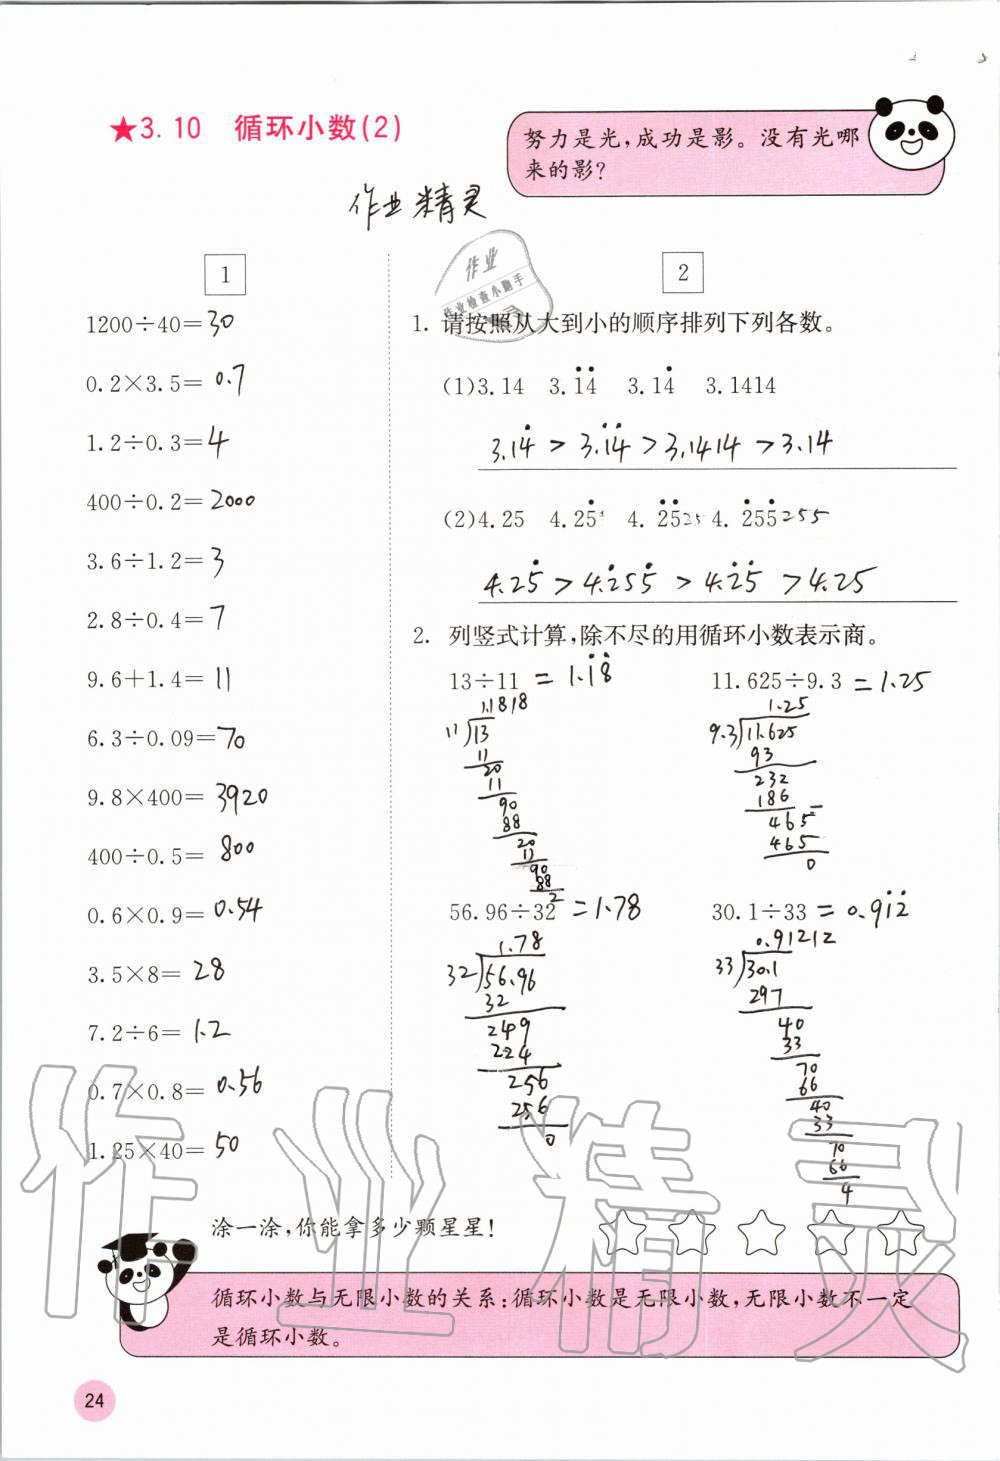 ★3.10 循环小数(2)
努力是光,成功是影。没有光哪
来的影?
作业精灵
作业
作业检查小助手
1
1200÷40=30
0.2×3.5=0.7
1.2÷0.3=4
400÷0.2=2000
3.6÷1.2=3
2.8÷0.4=7
9.6+1.4=11
6.3÷0.09=70
9.8×400=3920
400÷0.5=800
0.6×0.9=0.54
3.5×8=28
7.2÷6=1.2
0.7×0.8=0.56
1.25×40=50
2
1. 请按照从大到小的顺序排列下列各数。
(1)3.14 3.1̇4̇ 3.14̇ 3.1414
3.14̇ > 3.1̇4̇ > 3.1414 > 3.14
(2)4.25 4.25̇ 4.2̇5̇25 4.2̇55̇255
4.25̇ > 4.2̇55̇ > 4.2̇5̇ > 4.25
2. 列竖式计算,除不尽的用循环小数表示商。
13÷11 = 1.1̇8̇
1.1818
11 13
11
20
11
90
88
20
11
90
88
2
11.625÷9.3=1.25
1.25
9.3 11.625
93
232
186
465
465
0
56.96÷32=1.78
1.78
32 56.96
32
249
224
256
256
0
30.1÷33=0.91̇2̇
0.91212
33 30.1
297
40
33
70
66
40
33
70
66
4
作业精灵
涂一涂,你能拿多少颗星星!
循环小数与无限小数的关系:循环小数是无限小数,无限小数不一定
是循环小数。
24